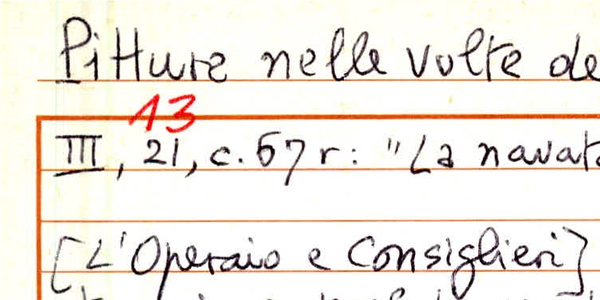 Pitture nelle volte de
13
III, 21, c. 67 r: "La navat
[L'Operaio e Consiglieri]